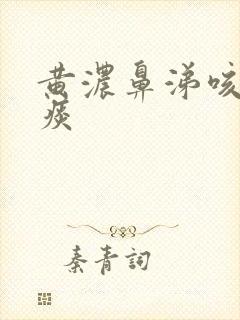 黄濃鼻涕咳
痰
秦青詞